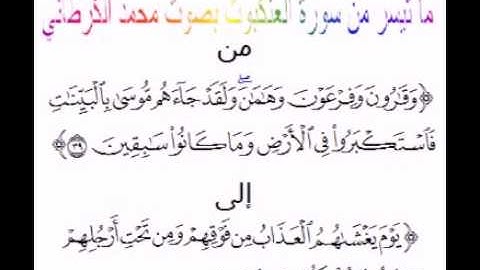 ما تيسر من سورة العنكبوت بصوت محمد الكرطاني
من
﴿وَقَٰرُونَ وَفِرْعَوْنَ وَهَٰمَٰنَ ۖ وَلَقَدْ جَآءَهُم مُّوسَىٰ بِالْبَيِّنَٰتِ
فَاسْتَكْبَرُوا۟ فِى الْأَرْضِ وَمَا كَانُوا۟ سَٰبِقِينَ ﴿٣٩﴾
إلى
﴿يَوْمَ يَغْشَىٰهُمُ الْعَذَابُ مِن فَوْقِهِمْ وَمِن تَحْتِ أَرْجُلِهِمْ